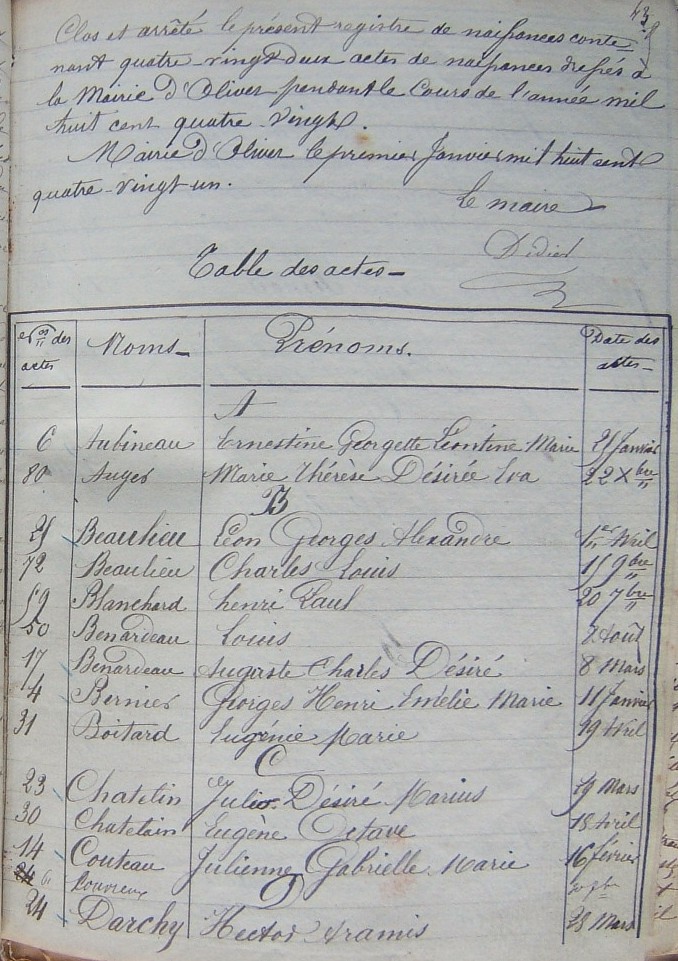 43
Clos et arrêté le présent registre de naissances conte
nant quatre vingt deux actes de naissances dressés à
la Mairie d'Olivet pendant le Cours de l'année mil
huit cent quatre-vingt.
Mairie d'Olivet le premier Janvier mil huit cent
quatre-vingt-un.
Le maire
Didier
Table des actes
Nos des actes Noms Prénoms. Date des actes
A
6 Aubineau Ernestine Georgette Léontine Marie 21 Janvier
80 Auger Marie Thérèse Désirée Eva 22 Xbre
B
Beaulieu Léon Georges Alexandre 1er Avril
72 Beaulieu Charles Louis 9bre
59 Blanchard henri Paul 20 7bre
50 Benardeau Louis Août
17 Benardeau Auguste Charles Désiré 8 Mars
4 Bernier Georges Henri Emélie Marie 11 Janvier
31 Boitard Eugénie Marie 19 Avril
C
23 Chatelin Julie Désiré Marius 19 Mars
30 Chatelain Eugène Octave 18 Avril
14 Couteau Julienne Gabrielle Marie 16 février
Couvreux
D
24 Darchy Hector Aramis 28 Mars